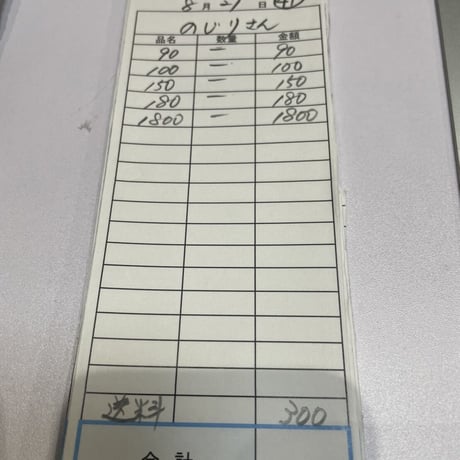 8月21日
のじりさん
品名 数量 金額
90 一 90
100 一 100
150 一 150
180 一 180
1800 一 1800
送料 300
合計